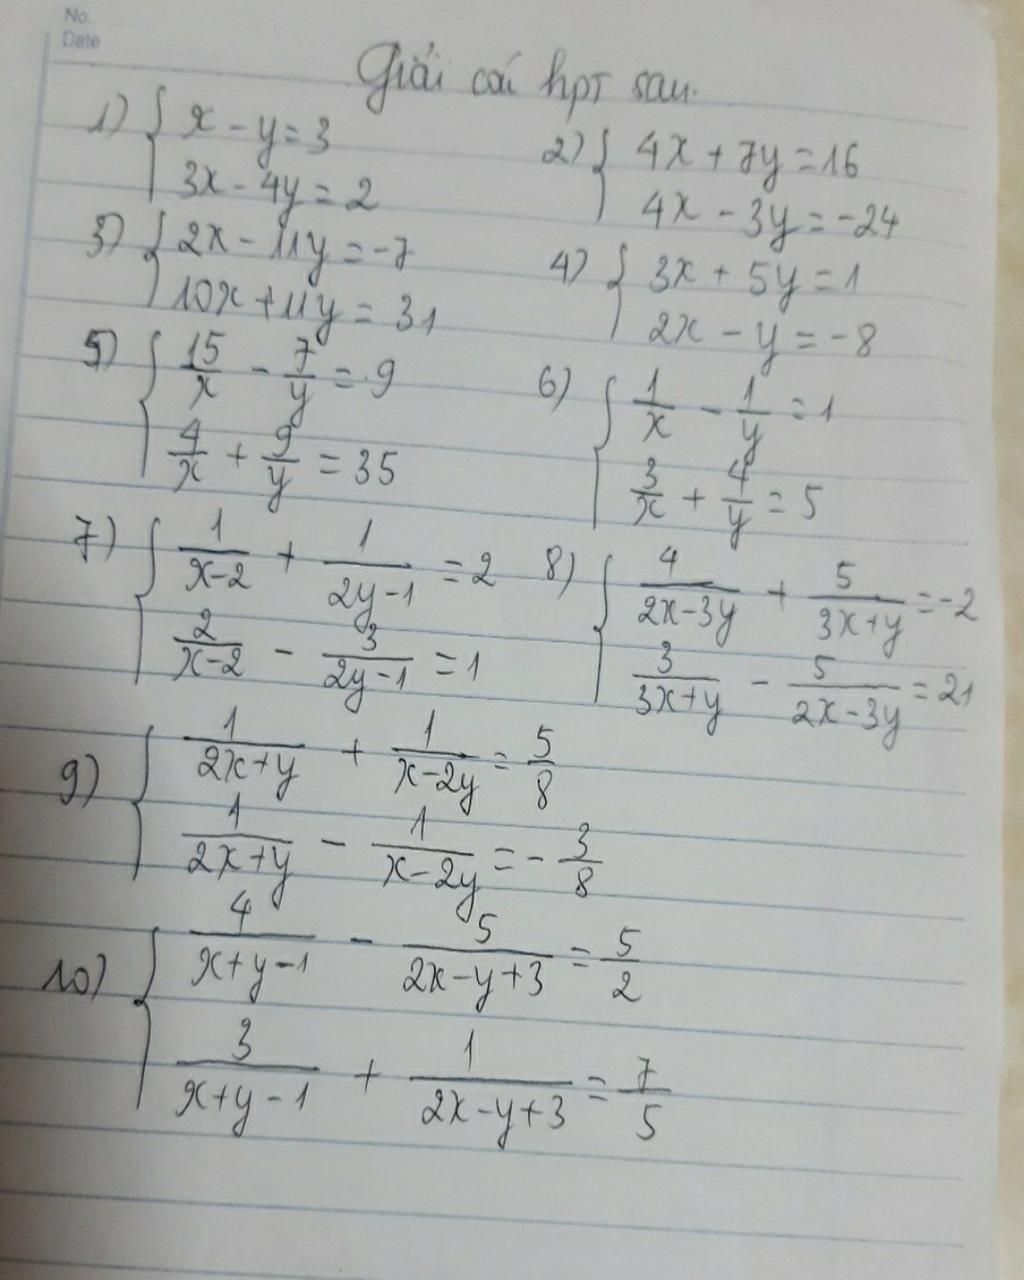 No.
Date
Giải các hpT sau.
1) { x - y = 3
3x - 4y = 2
2) { 4x + 7y = 16
4x - 3y = -24
3) { 2x - 11y = -7
10x + 11y = 31
4) { 3x + 5y = 1
2x - y = -8
5) { 15/x - 7/y = 9
4/x + 9/y = 35
6) { 1/x - 1/y = 1
3/x + 4/y = 5
7) { 1/(x-2) + 1/(2y-1) = 2
2/(x-2) - 3/(2y-1) = 1
8) { 4/(2x-3y) + 5/(3x+y) = -2
3/(3x+y) - 5/(2x-3y) = 21
9) { 1/(2x+y) + 1/(x-2y) = 5/8
1/(2x+y) - 1/(x-2y) = -3/8
10) { 4/(x+y-1) - 5/(2x-y+3) = 5/2
3/(x+y-1) + 1/(2x-y+3) = 7/5